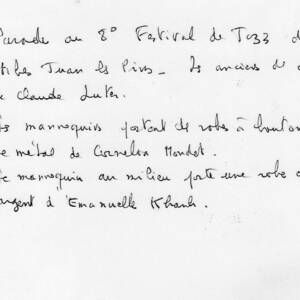 Parade au 8° Festival de Jazz d
tibes Juan les Pins _ Les anciens de
Claude Luter.
mannequins portent des robes à boutons
de métal de
Le mannequin au milieu porte une robe
argent d'Emanuelle Khanh.